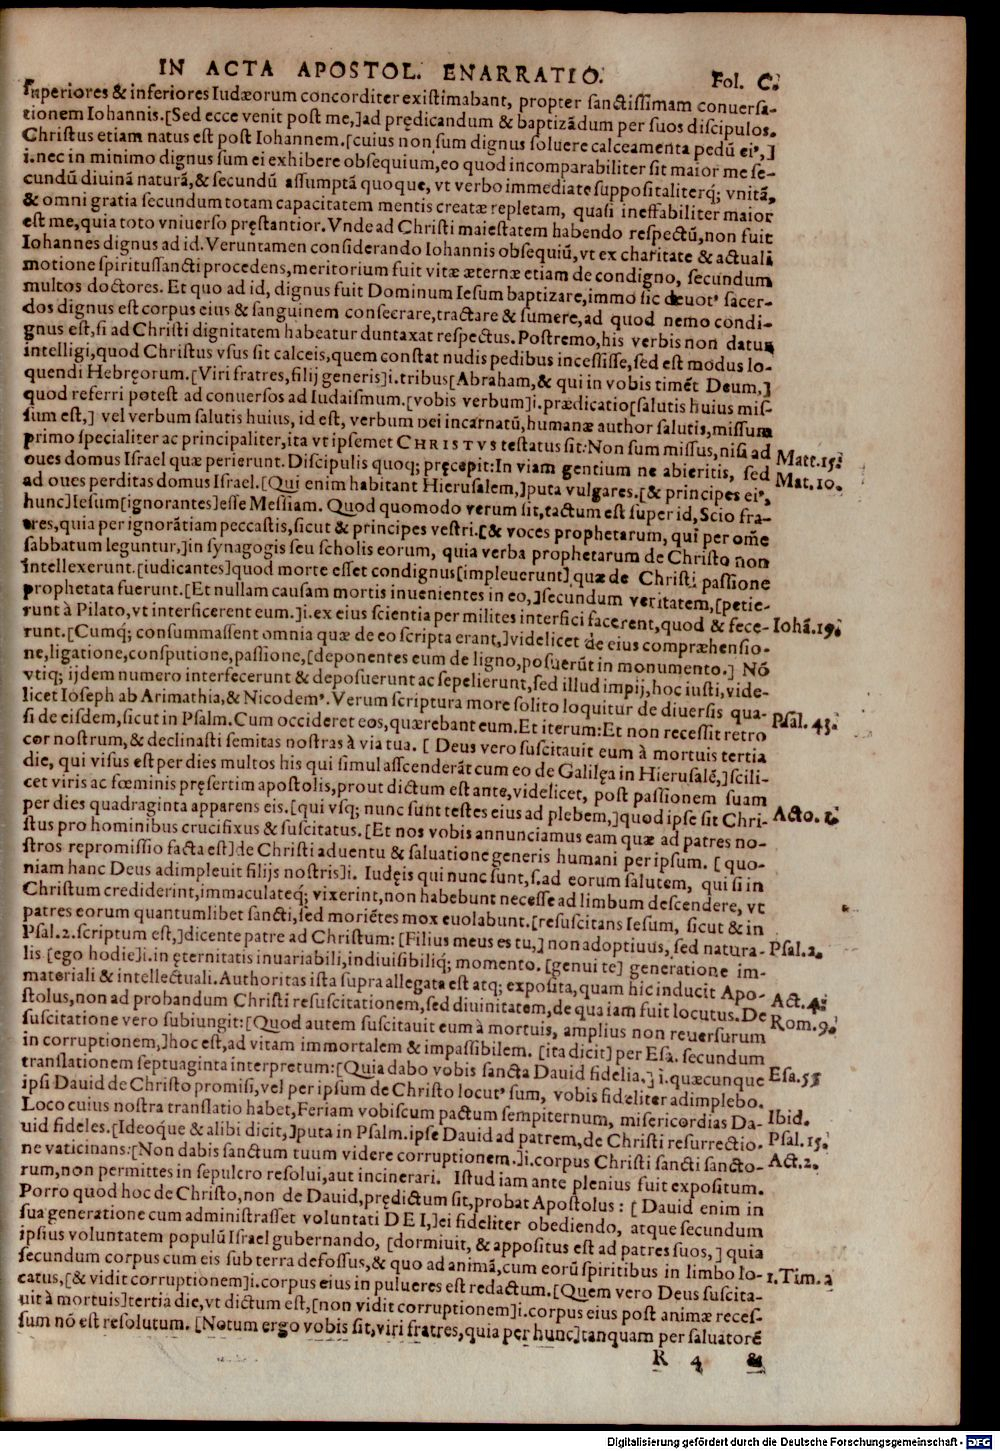 IN ACTA APOSTOL. ENARRATIO. Fol. C.
superiores & inferiores Iudæorum concorditer existimabant, propter sanctissimam conuersa-
tionem Iohannis.[Sed ecce venit post me,]ad prędicandum & baptizādum per suos discipulos.
Christus etiam natus est post Iohannem.[cuius non sum dignus soluere calceamenta pedū ei⁹,]
i.nec in minimo dignus sum ei exhibere obsequium,eo quod incomparabiliter sit maior me se-
cundū diuinā naturā,& secundū assumptā quoque, vt verbo immediate suppositaliterq; vnitā,
& omni gratia secundum totam capacitatem mentis creatæ repletam, quasi ineffabiliter maior
est me,quia toto vniuerso pręstantior. Vnde ad Christi maiestatem habendo respectū,non fuit
Iohannes dignus ad id. Veruntamen considerando Iohannis obsequiū,vt ex charitate & actuali
motione spiritussancti procedens,meritorium fuit vitæ æternæ etiam de condigno, secundum
multos doctores. Et quo ad id, dignus fuit Dominum Iesum baptizare,immo sic deuot⁹ sacer-
dos dignus est corpus eius & sanguinem consecrare,tractare & sumere,ad quod nemo condi-
gnus est,si ad Christi dignitatem habeatur duntaxat respectus. Postremo,his verbis non datur
intelligi,quod Christus vsus sit calceis,quem constat nudis pedibus incessisse,sed est modus lo-
quendi Hebręorum.[Viri fratres,filij generis]i.tribus[Abraham,& qui in vobis timēt Deum,]
quod referri potest ad conuersos ad Iudaismum.[vobis verbum]i.prædicatio[salutis huius mis-
sum est,] vel verbum salutis huius, id est, verbum Dei incarnatū,humanæ author salutis,missum
primo specialiter ac principaliter,ita vt ipsemet CHRISTVS testatus sit:Non sum missus,nisi ad Matt.15.
oues domus Israel quæ perierunt. Discipulis quoq; pręcepit:In viam gentium ne abieritis, sed Mat.10.
ad oues perditas domus Israel.[Qui enim habitant Hierusalem,]puta vulgares.[& principes ei⁹,
hunc]Iesum[ignorantes]esse Messiam. Quod quomodo verum sit,tactum est super id,Scio fra-
tres,quia per ignorātiam peccastis,sicut & principes vestri.[& voces prophetarum, qui per om̄e
sabbatum leguntur,]in synagogis seu scholis eorum, quia verba prophetarum de Christo non
intellexerunt.[iudicantes]quod morte esset condignus[impleuerunt] quæ de Christi passione
prophetata fuerunt.[Et nullam causam mortis inuenientes in eo,]secundum veritatem,[petie-
runt à Pilato,vt interficerent eum.]i.ex eius scientia per milites interfici facerent,quod & fece- Iohā.19.
runt.[Cumq; consummassent omnia quæ de eo scripta erant,]videlicet de eius compræhensio-
ne,ligatione,consputione,passione,[deponentes eum de ligno,posuerūt in monumento.] Nō
vtiq; ijdem numero interfecerunt & deposuerunt ac sepelierunt,sed illud impij,hoc iusti,vide-
licet Ioseph ab Arimathia,& Nicodem⁹. Verum scriptura more solito loquitur de diuersis qua-
si de eisdem,sicut in Psalm.Cum occideret eos,quærebant eum.Et iterum:Et non recessit retro Psal.43.
cor nostrum,& declinasti semitas nostras à via tua. [ Deus vero suscitauit eum à mortuis tertia
die, qui visus est per dies multos his qui simul asscenderāt cum eo de Galilęa in Hierusalē,]scili-
cet viris ac fœminis pręsertim apostolis,prout dictum est ante,videlicet, post passionem suam
per dies quadraginta apparens eis.[qui vsq; nunc sunt testes eius ad plebem,]quod ipse sit Chri- Acto.1.
stus pro hominibus crucifixus & suscitatus.[Et nos vobis annunciamus eam quæ ad patres no-
stros repromissio facta est]de Christi aduentu & saluatione generis humani per ipsum. [quo-
niam hanc Deus adimpleuit filijs nostris]i. Iudęis qui nunc sunt,s.ad eorum salutem, qui si in
Christum crediderint,immaculateq; vixerint,non habebunt necesse ad limbum descendere, vt
patres eorum quantumlibet sancti,sed moriētes mox euolabunt.[resuscitans Iesum, sicut & in
Psal.2.scriptum est,]dicente patre ad Christum: [Filius meus es tu,] non adoptiuus, sed natura- Psal.2.
lis [ego hodie]i.in ęternitatis inuariabili,indiuisibiliq; momento. [genui te] generatione im-
materiali & intellectuali.Authoritas ista supra allegata est atq; exposita,quam hic inducit Apo- Act.4.
stolus,non ad probandum Christi resuscitationem,sed diuinitatem,de qua iam fuit locutus.De Rom.9.
suscitatione vero subiungit:[Quod autem suscitauit eum à mortuis, amplius non reuersurum
in corruptionem,]hoc est,ad vitam immortalem & impassibilem. [ita dicit] per Esa. secundum
translationem septuaginta interpretum:[Quia dabo vobis sancta Dauid fidelia.] i.quæcunque Esa.55
ipsi Dauid de Christo promisi,vel per ipsum de Christo locut⁹ sum, vobis fideliter adimplebo.
Loco cuius nostra translatio habet,Feriam vobiscum pactum sempiternum, misericordias Da- Ibid.
uid fideles.[Ideoque & alibi dicit,]puta in Psalm.ipse Dauid ad patrem,de Christi resurrectio- Psal.15.
ne vaticinans:[Non dabis sanctum tuum videre corruptionem.]i.corpus Christi sancti sancto- Act.2.
rum,non permittes in sepulcro resolui,aut incinerari. Istud iam ante plenius fuit expositum.
Porro quod hoc de Christo,non de Dauid,prędictum sit,probat Apostolus: [Dauid enim in
sua generatione cum administrasset voluntati DEI,]ei fideliter obediendo, atque secundum
ipsius voluntatem populū Israel gubernando, [dormiuit, & appositus est ad patres suos,] quia
secundum corpus cum eis sub terra defossus,& quo ad animā,cum eorū spiritibus in limbo lo- 1.Tim.2
catus,[& vidit corruptionem]i.corpus eius in pulueres est redactum.[Quem vero Deus suscita-
uit à mortuis]tertia die,vt dictum est,[non vidit corruptionem]i.corpus eius post animæ reces-
sum nō est resolutum. [Notum ergo vobis sit,viri fratres,quia per hunc]tanquam per saluatorē
R 4 &
Digitalisierung gefördert durch die Deutsche Forschungsgemeinschaft - DFG